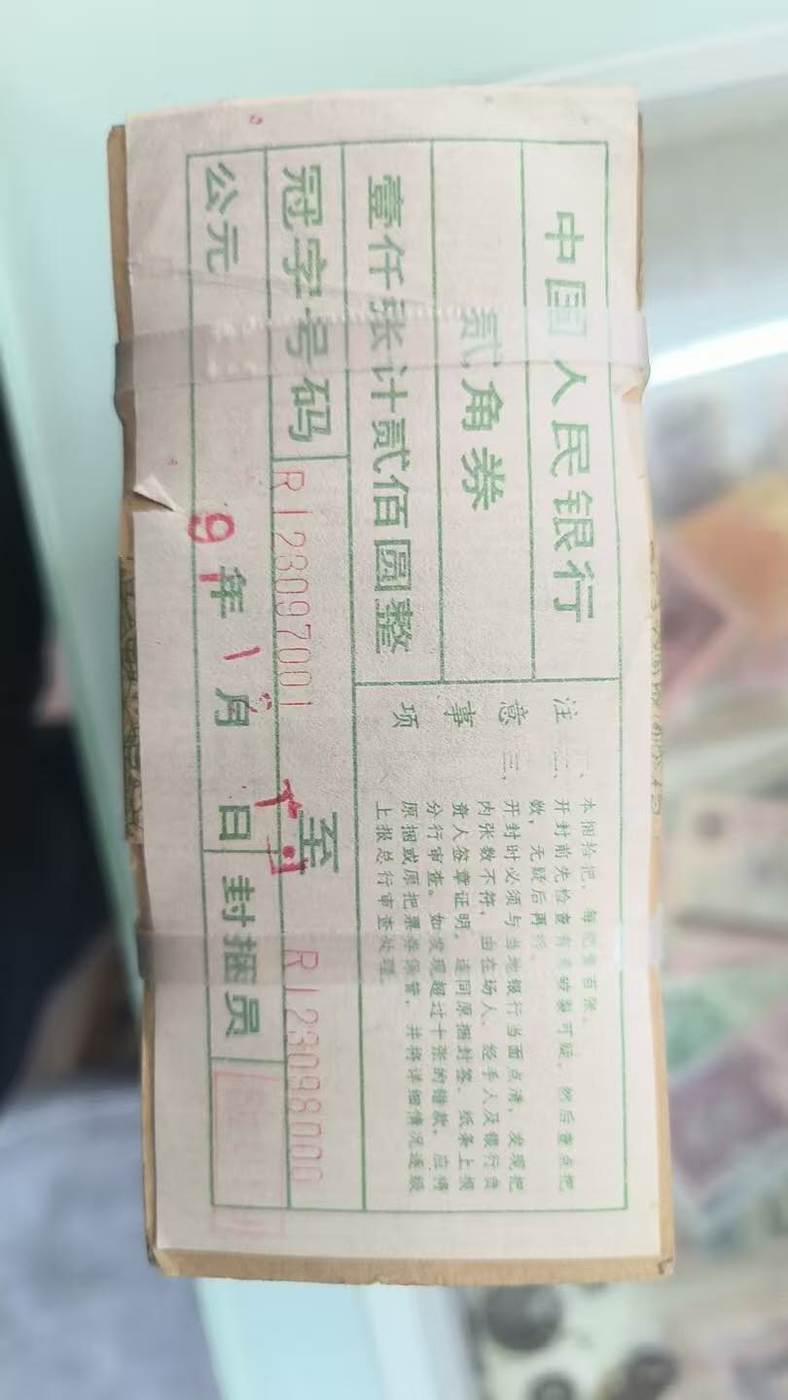 中国人民银行
贰角券
壹仟张计贰佰圆整
冠字号码 RI23097001 至 RI23098000
公元 9 年 1 月 日 封捆员
注意事项
一、本捆拾把,每把壹百张。
二、开封前先检查有无破裂可疑,然后查点把
数,无疑后再
三、开封时必须与当地银行当面点清,发现把
内张数不符,由在场人、经手人及银行负
责人签章证明,连同原捆封签、纸条上报
分行审查。如发现超过十张的错款,应将
原捆或原把票券保管,并将详细情况逐级
上报总行审查处理。